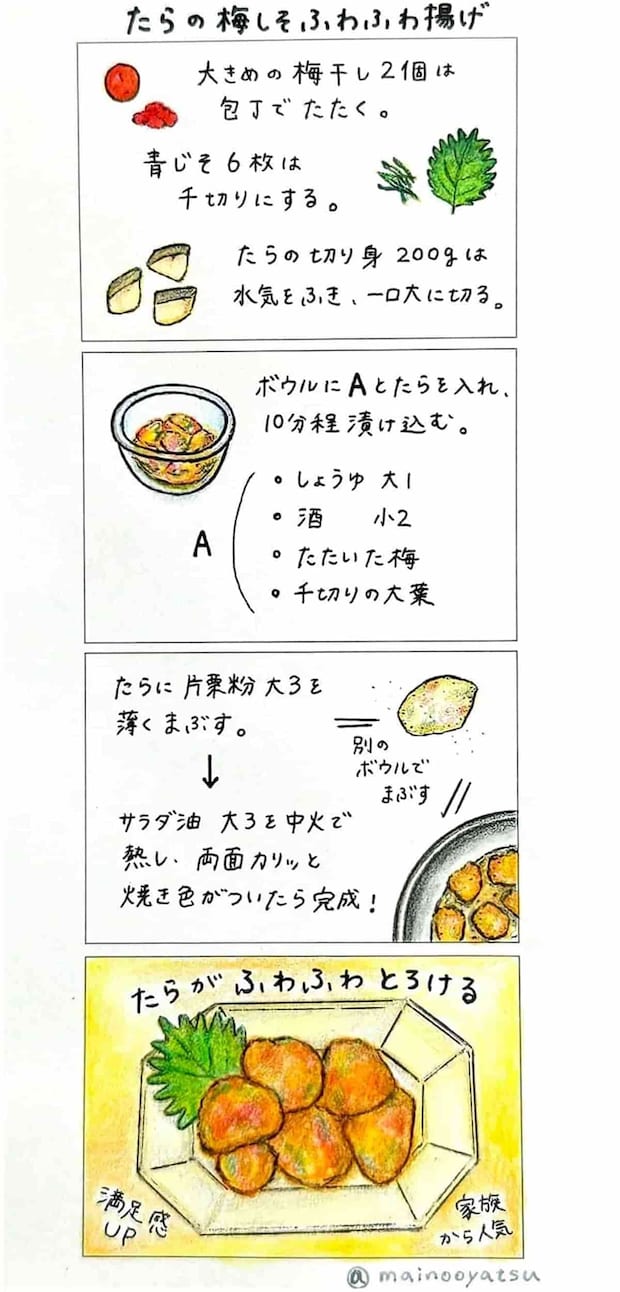 たらの梅しそふわふわ揚げ
大きめの梅干し2個は
包丁でたたく。
青じそ6枚は
千切りにする。
たらの切り身200gは
水気をふき、一口大に切る。
ボウルにAとたらを入れ、
10分程漬け込む。
A
• しょうゆ 大1
• 酒 小2
• たたいた梅
• 千切りの大葉
たらに片栗粉大3を
薄くまぶす。
別の
ボウルで
まぶす
↓
サラダ油 大3を中火で
熱し、両面カリッと
焼き色がついたら完成!
たらがふわふわとろける
満足感
UP
家族
から人気
@mainooyatsu